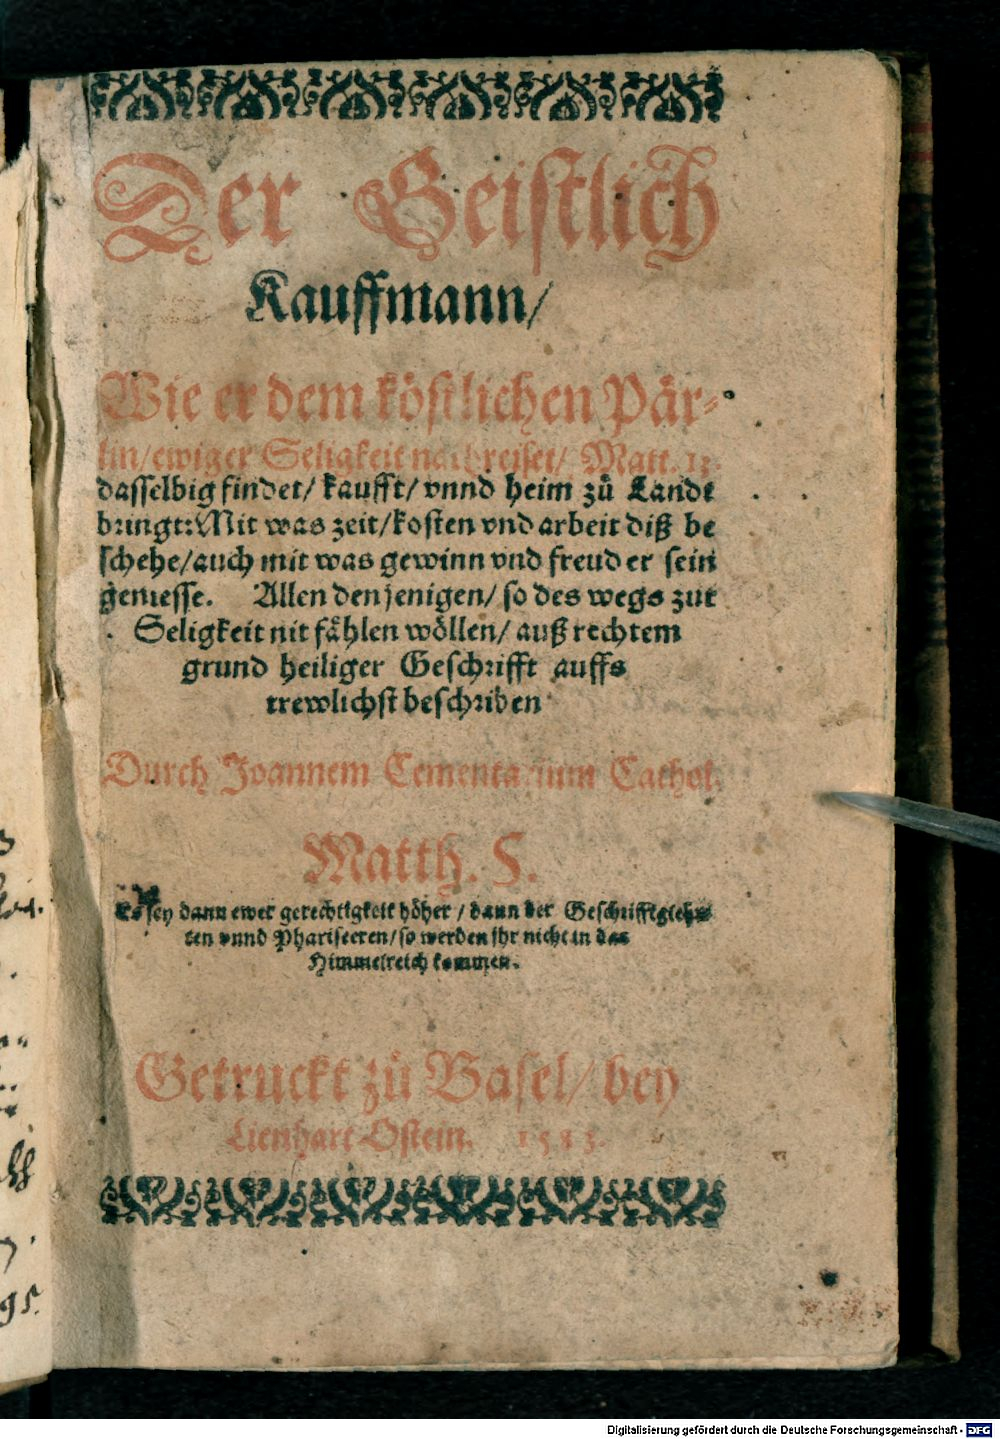 Der Geistlich
Kauffmann/
Wie er dem köstlichen Pär-
lin/ewiger Seligkeit nachreiset/ Matt. 13.
dasselbig findet/ kaufft/ vnnd heim zů Landt
bringt: Mit was zeit/kosten vnd arbeit diß be
schehe/auch mit was gewinn vnd freud er sein
geniesse. Allen denjenigen/ so des wegs zur
Seligkeit nit fählen wöllen/ auß rechtem
grund heiliger Geschrifft auffs
trewlichst beschriben
Durch Joannem Cementarium Cathol.
Matth. 5.
Es sey dann ewer gerechtigkeit höher/ dann der Geschrifftglehr
ten vnnd Phariseeren/so werden ihr nicht in das
Himmelreich kommen.
Getruckt zů Basel/ bey
Lienhart Ostein.
95.
Digitalisierung gefördert durch die Deutsche Forschungsgemeinschaft - DFG